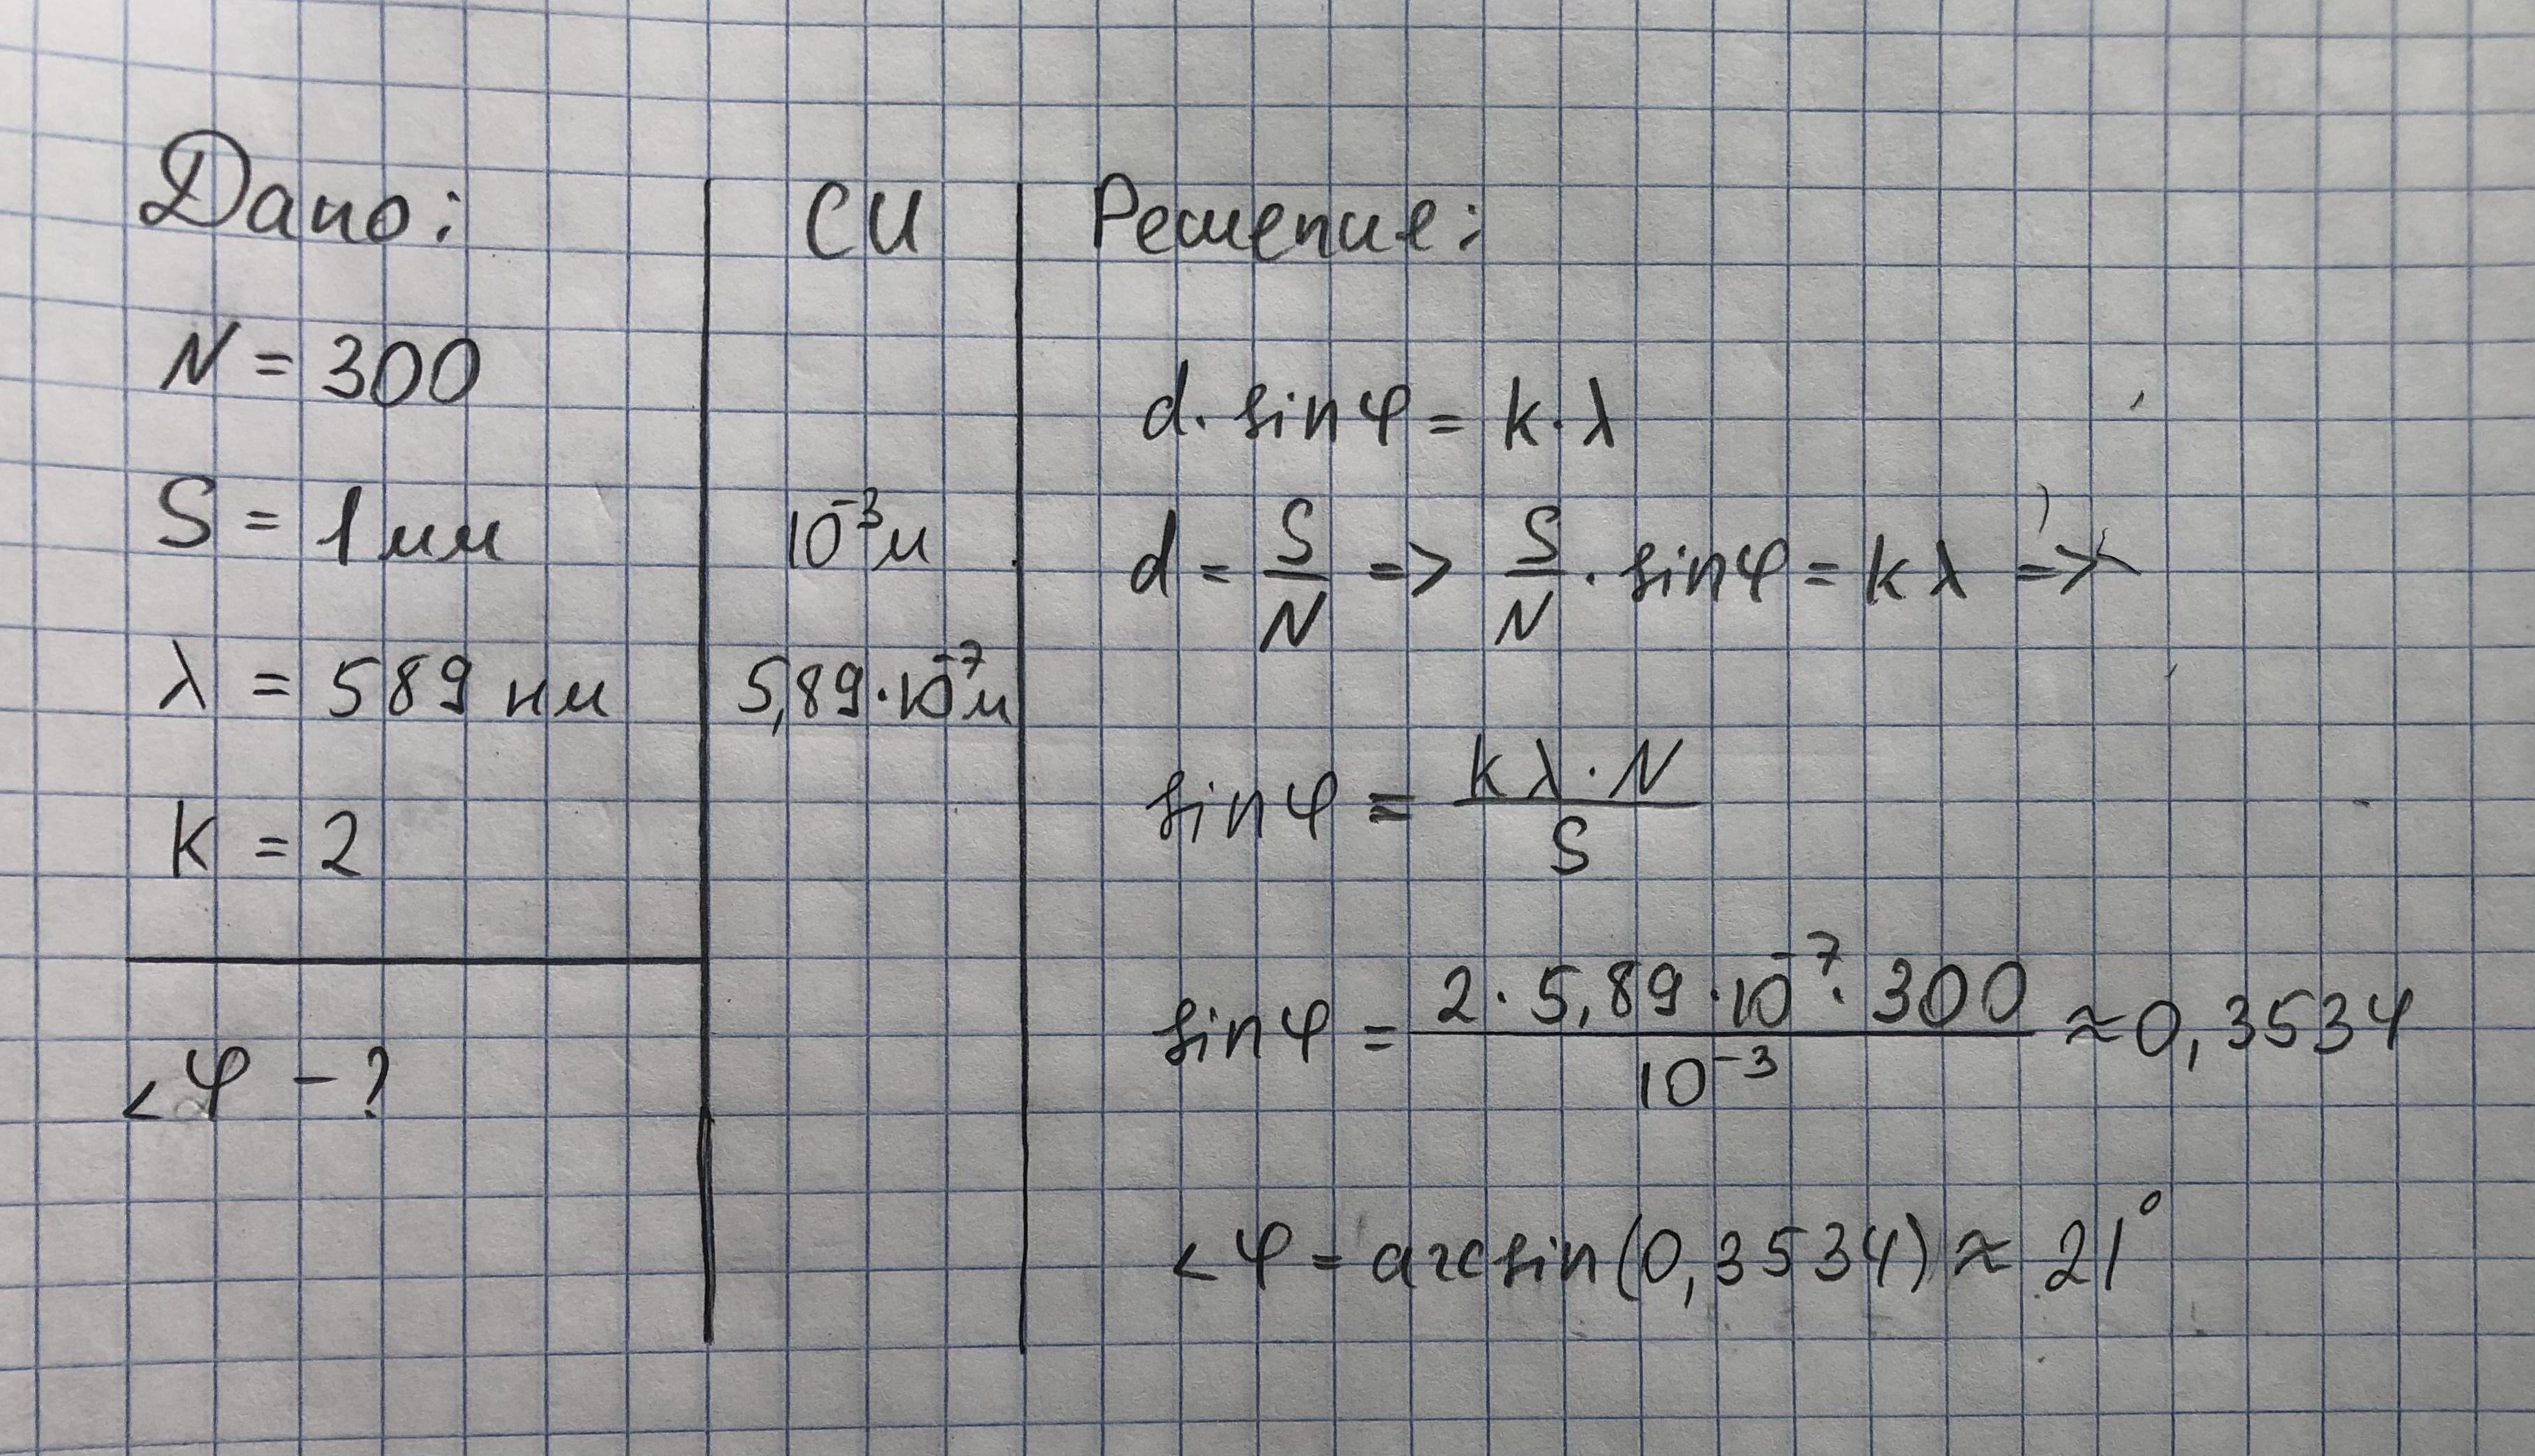 Дано:
N = 300
S = 1 мм
λ = 589 нм
k = 2
∠φ - ?
СИ
10⁻³м
5,89·10⁻⁷м
Решение:
d· sinφ = k·λ
d = S/N => S/N · sinφ = kλ =>
sinφ = kλ·N/S
sinφ = 2·5,89·10⁻⁷·300/10⁻³ ≈ 0,3534
∠φ = arcsin(0,3534) ≈ 21°